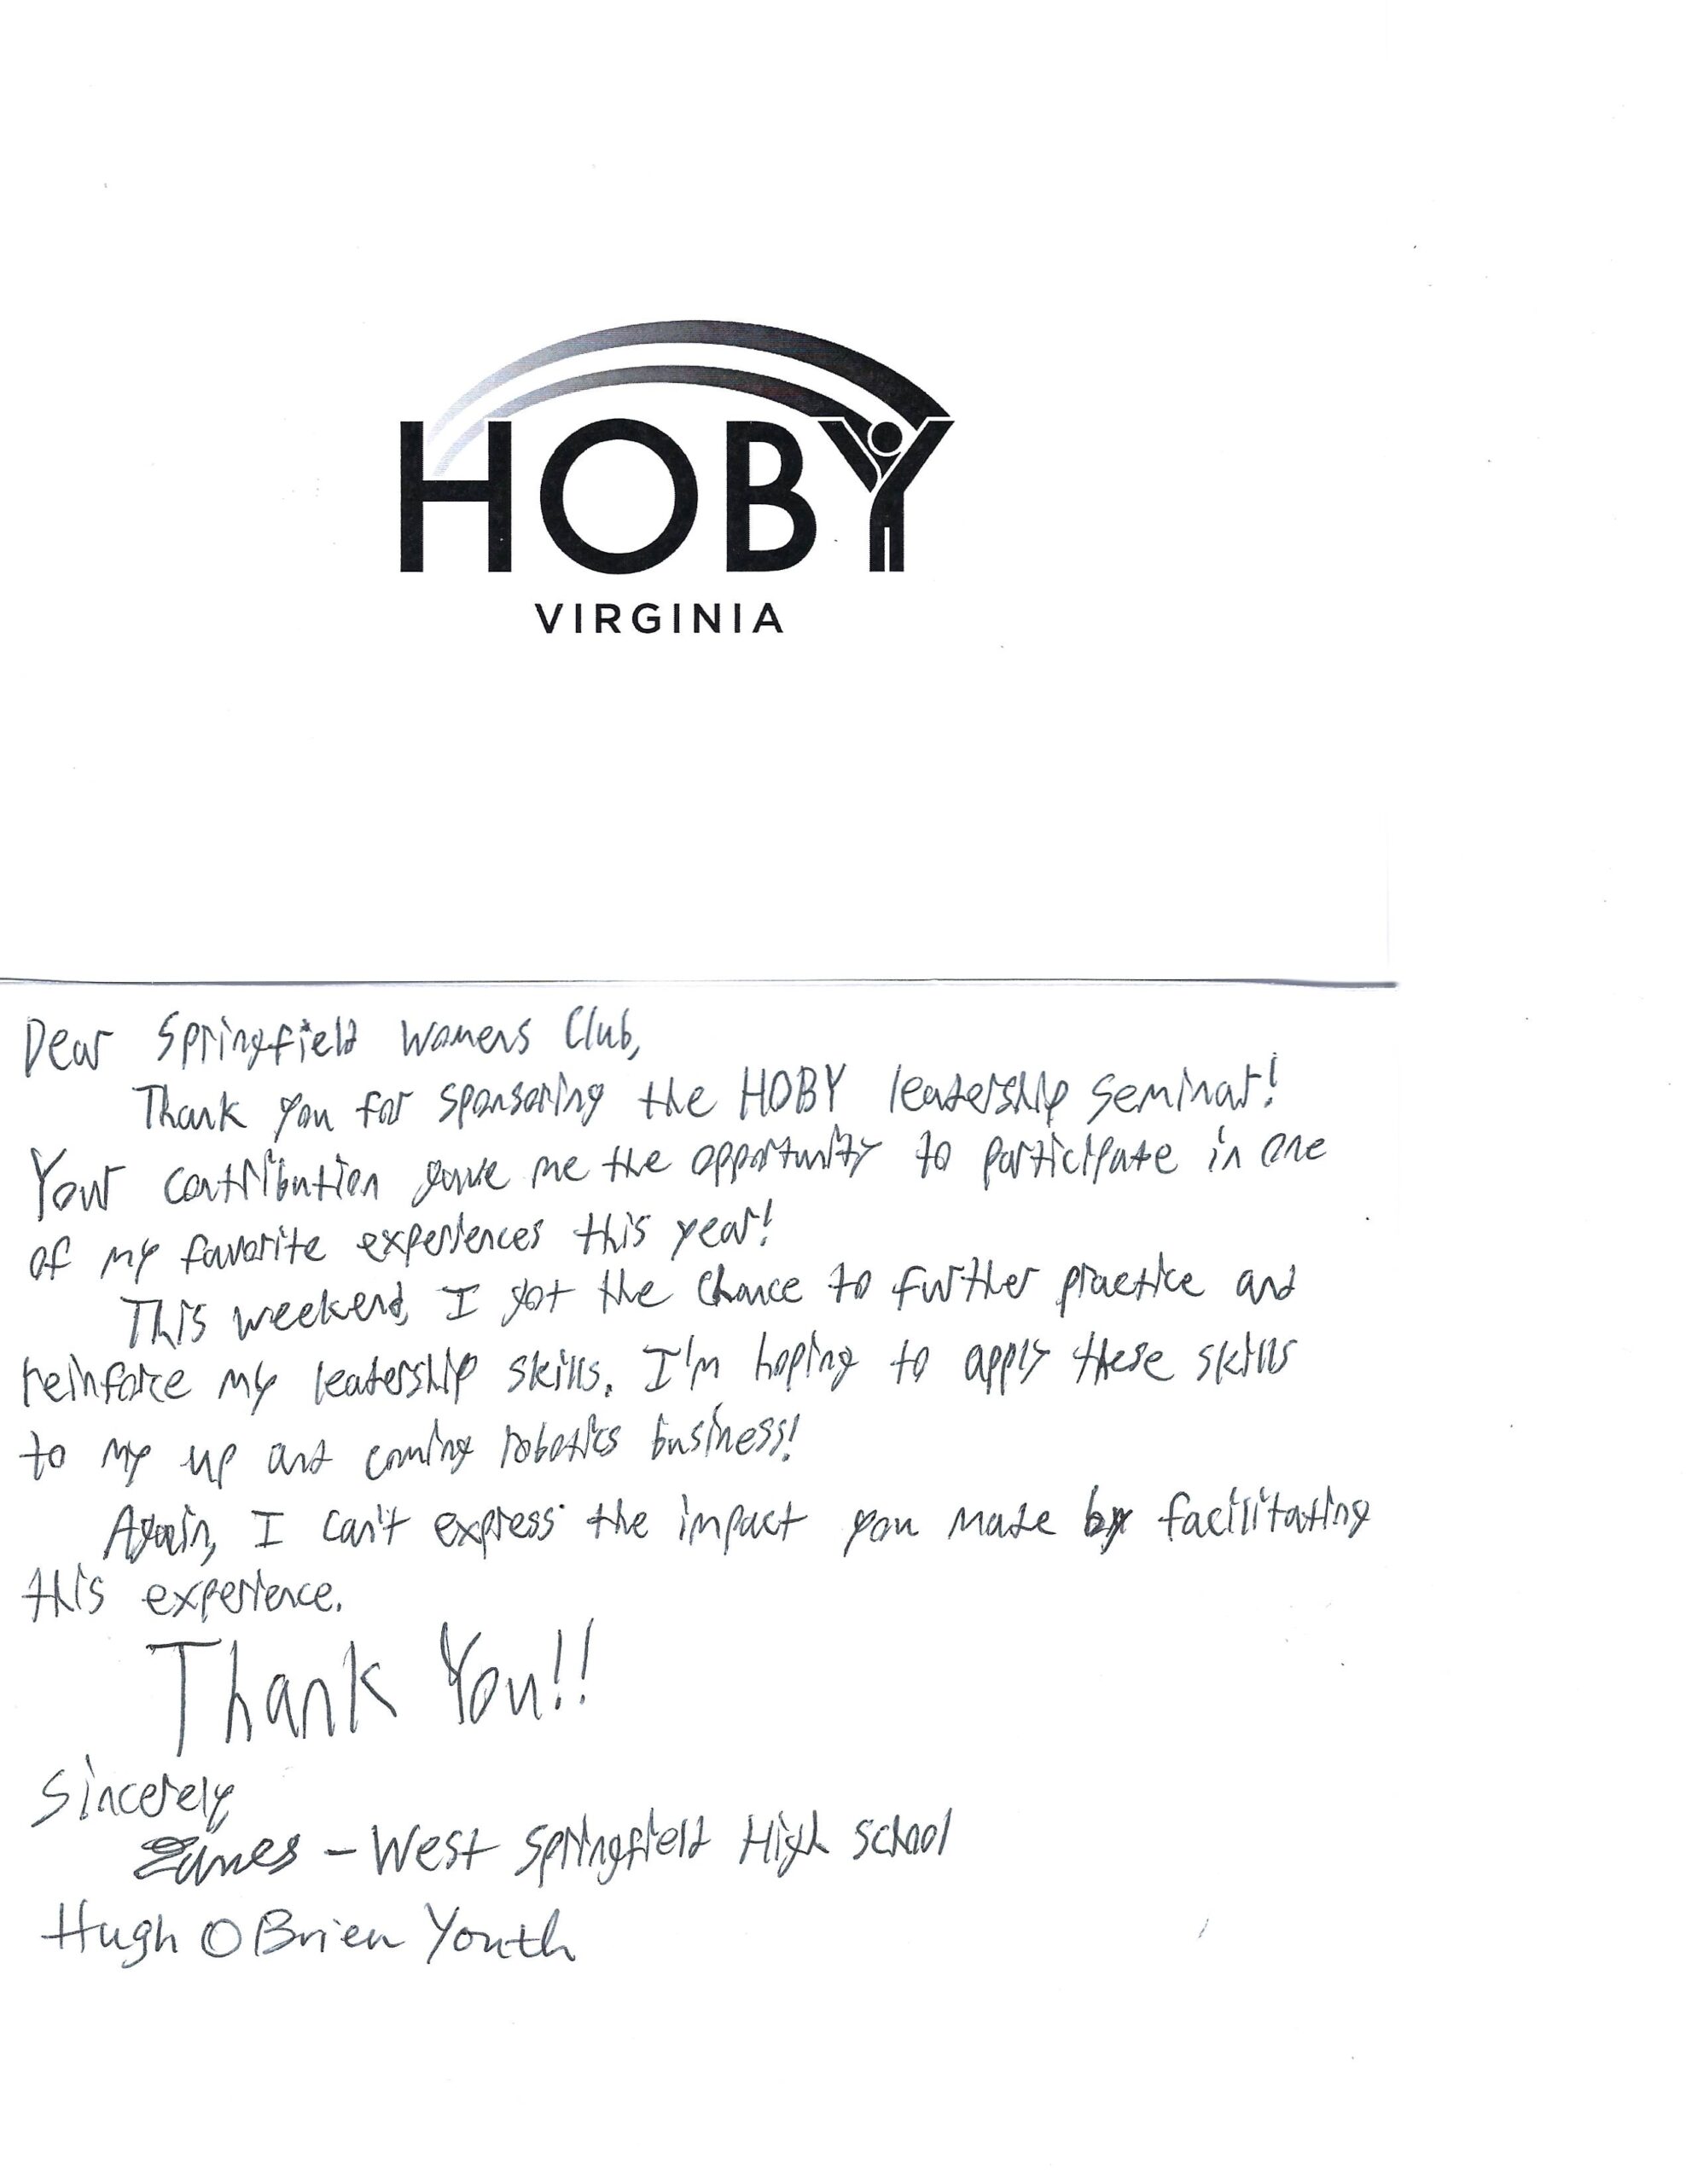 HOBY
VIRGINIA
Dear Springfield Womens Club,
Thank you for sponsoring the HOBY leadership seminar!
Your contribution gave me the opportunity to participate in one
of my favorite experiences this year!
This weekend, I got the chance to further practice and
reinforce my leadership skills. I'm hoping to apply these skills
to my up and coming robotics business!
Again, I can't express the impact you made by facilitating
this experience.
Thank You!!
Sincerely
- West Springfield High School
Hugh OBrien Youth